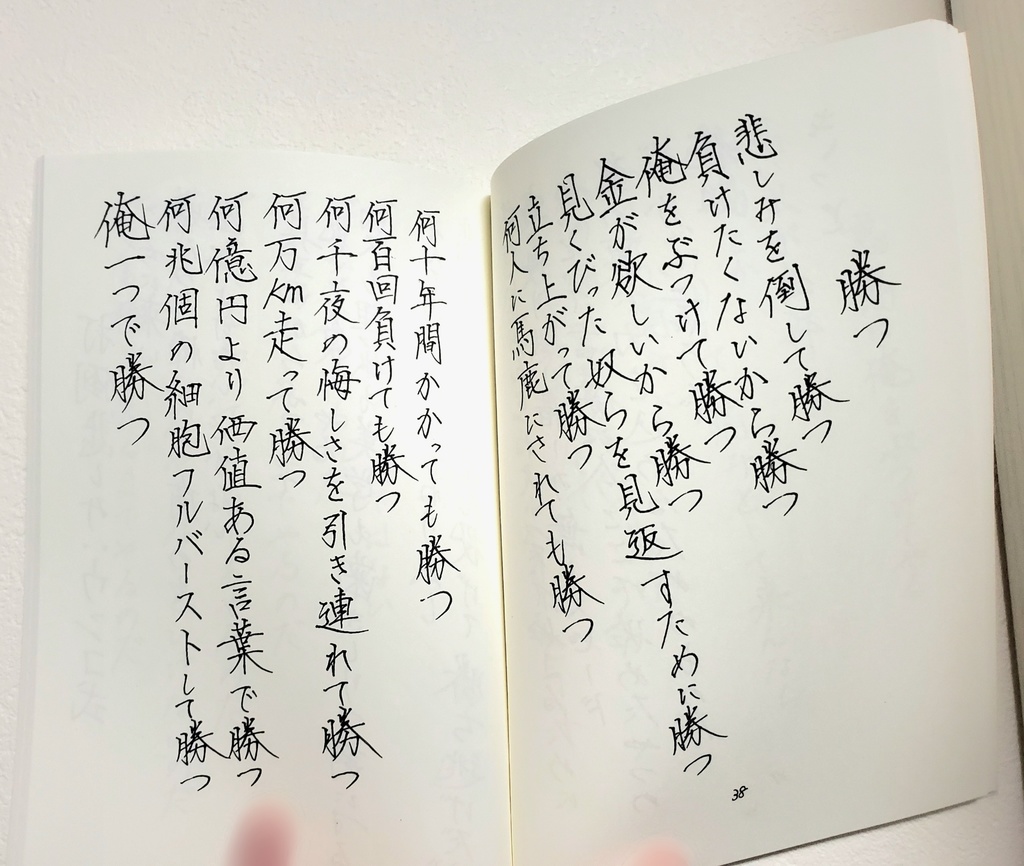 勝つ
悲しみを倒して勝つ
負けたくないから勝つ
俺をぶつけて勝つ
金が欲しいから勝つ
見くびった奴らを見返すために勝つ
立ち上がって勝つ
何人に馬鹿にされても勝つ
38
何十年間かかっても勝つ
何百回負けても勝つ
何千夜の悔しさを引き連れて勝つ
何万km走って勝つ
何億円より価値ある言葉で勝つ
何兆個の細胞フルバーストして勝つ
俺一つで勝つ